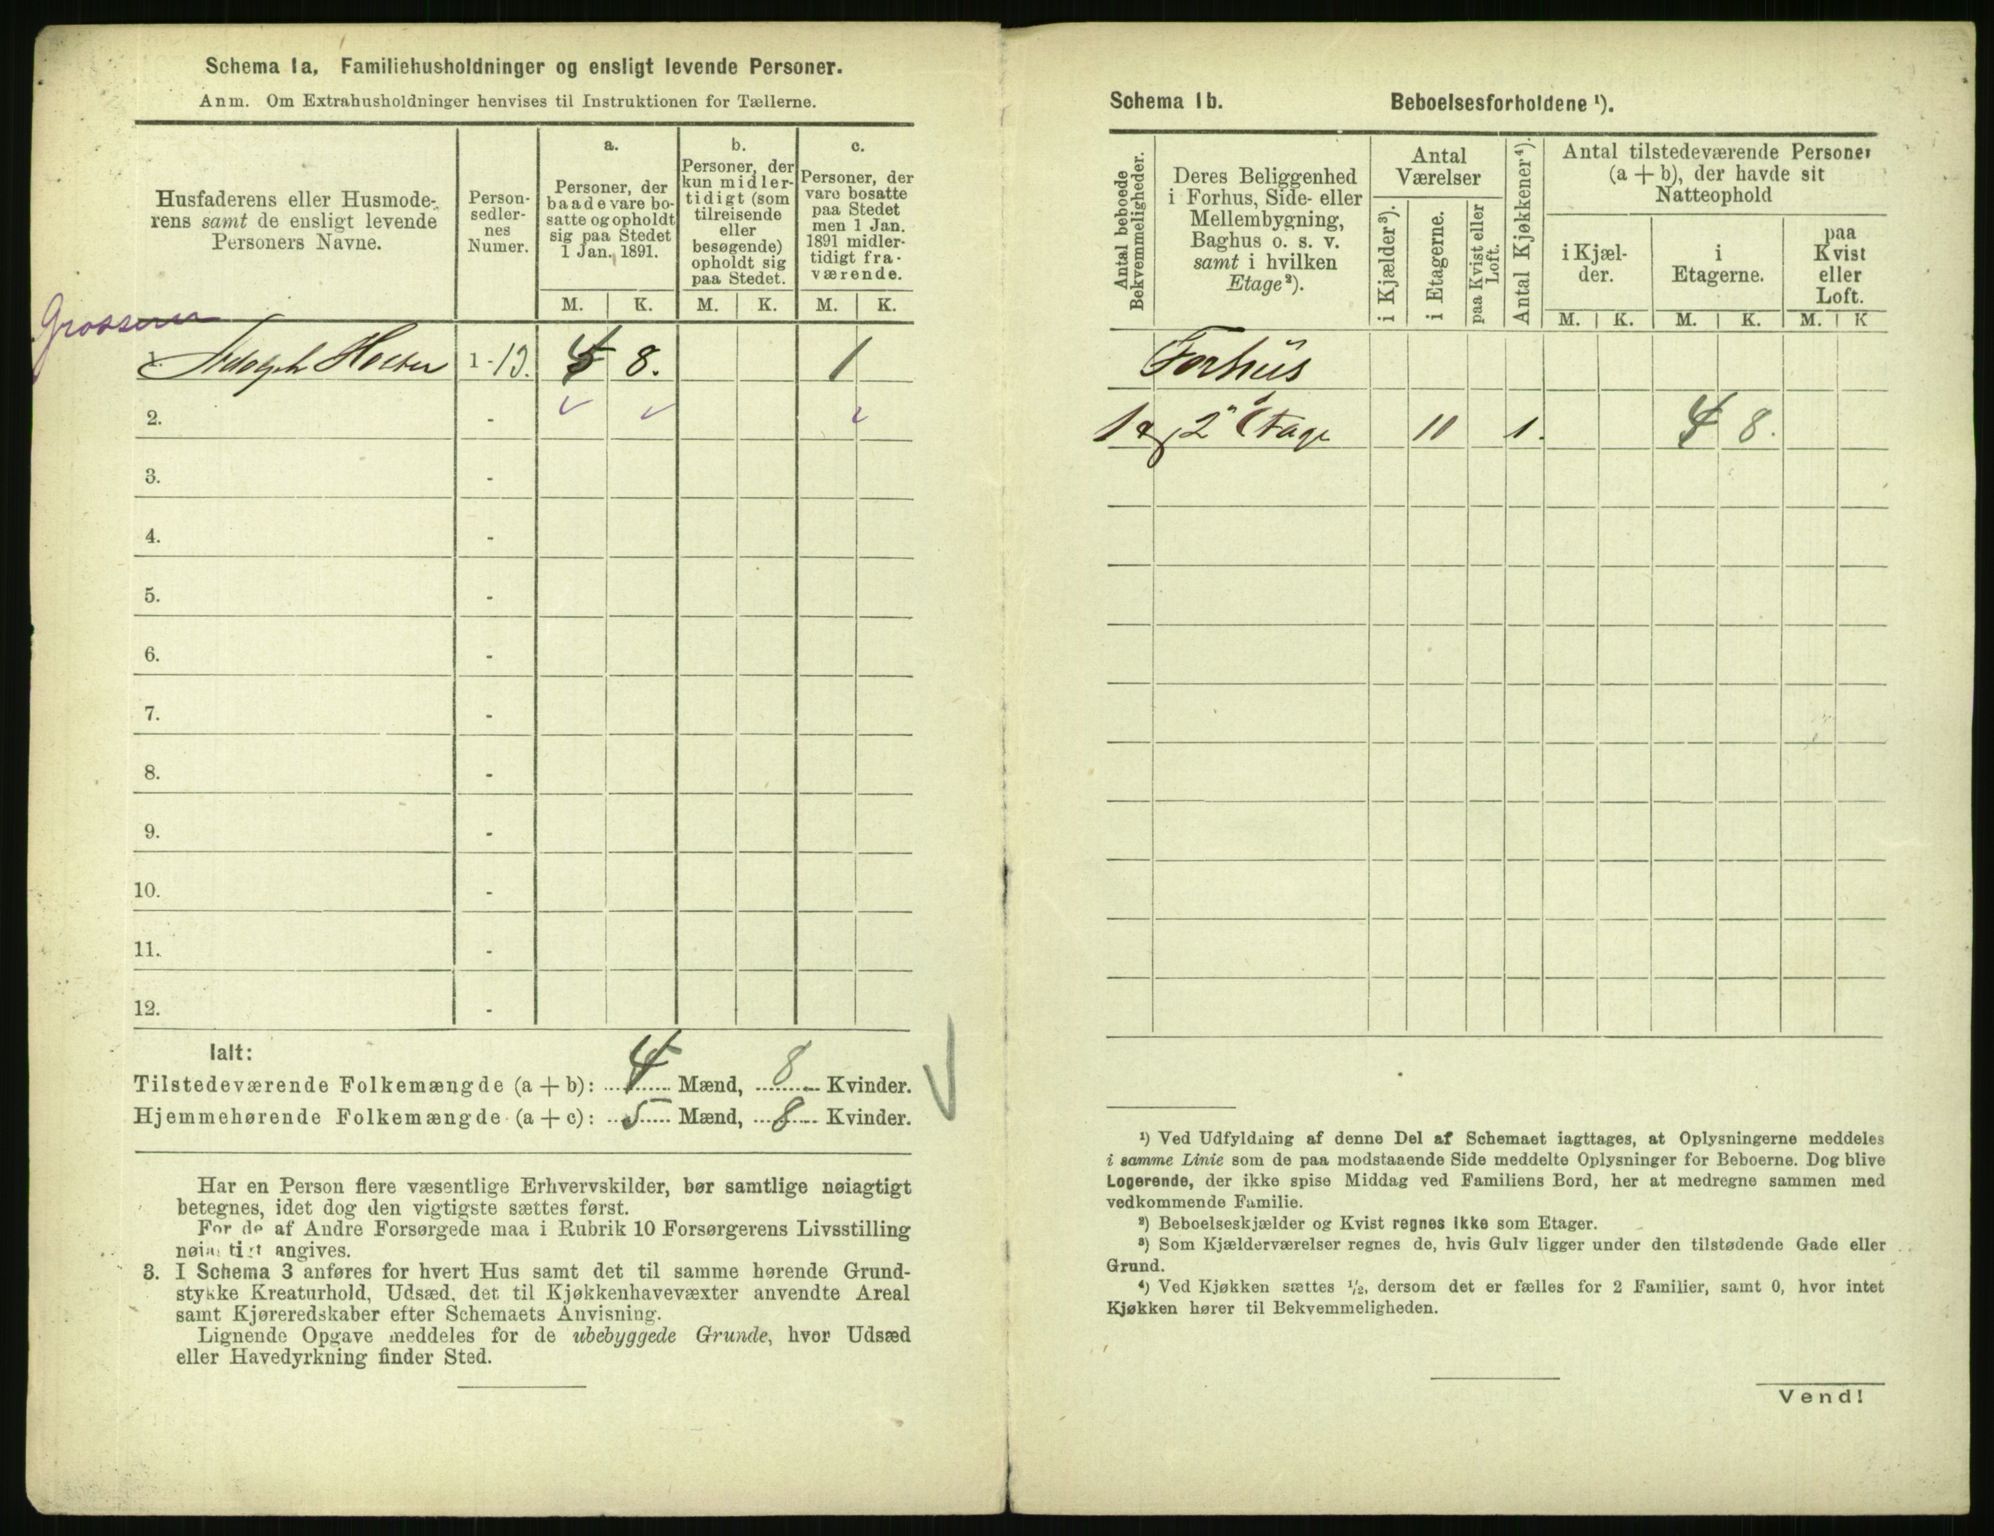 Schema 1a, Familiehusholdninger og ensligt levende Personer.
Anm. Om Extrahusholdninger henvises til Instruktionen for Tællerne.
Husfaderens eller Husmode-
rens samt de ensligt levende
Personers Navne.
Person-
sedler-
nes
Numer.
a.
Personer, der
baade vare bo-
satte og opholdt
sig paa Stedet
1 Jan. 1891.
b.
Personer, der
kun midler-
tidigt (som
tilreisende
eller
besøgende)
opholdt sig
paa Stedet.
c.
Personer, der
vare bosatte
paa Stedet
men 1 Jan.
1891 midler-
tidigt fra-
værende.
M. K. M. K. M. K.
Grosserer
1. Adolph Holter 1 - 13. 4 8. 1
2. -
3. -
4. -
5. -
6. -
7. -
8. -
9. -
10. -
11. -
12. -
Ialt:
Tilstedeværende Folkemængde (a + b): 4 Mænd, 8 Kvinder.
Hjemmehørende Folkemængde (a + c): 5 Mænd, 8 Kvinder.
Har en Person flere væsentlige Erhvervskilder, bør samtlige nøiagtigt
betegnes, idet dog den vigtigste sættes først.
For de af Andre Forsørgede maa i Rubrik 10 Forsørgerens Livsstilling
nøiagtigt angives.
3. I Schema 3 anføres for hvert Hus samt det til samme hørende Grund-
stykke Kreaturhold, Udsæd, det til Kjøkkenhavevæxter anvendte Areal
samt Kjøreredskaber efter Schemaets Anvisning.
Lignende Opgave meddeles for de ubebyggede Grunde, hvor Udsæd
eller Havedyrkning finder Sted.
Schema 1b. Beboelsesforholdene ¹).
Antal beboede
Bekvemmeligheder.
Deres Beliggenhed
i Forhus, Side- eller
Mellembygning,
Baghus o. s. v.
samt i hvilken
Etage²).
Antal
Værelser
i Kjælder³).
i Etagerne.
paa Kvist eller
Loft.
Antal Kjøkkener⁴).
Antal tilstedeværende Personer
(a + b), der havde sit
Natteophold
i Kjæl-
der.
i
Etagerne.
paa
Kvist
eller
Loft.
M. K. M. K. M. K
Forhus
1 og 2 Etage 11 1. 4 8.
¹) Ved Udfyldning af denne Del af Schemaet iagttages, at Oplysningerne meddeles
i samme Linie som de paa modstaaende Side meddelte Oplysninger for Beboerne. Dog blive
Logerende, der ikke spise Middag ved Familiens Bord, her at medregne sammen med
vedkommende Familie.
²) Beboelseskjælder og Kvist regnes ikke som Etager.
³) Som Kjælderværelser regnes de, hvis Gulv ligger under den tilstødende Gade eller
Grund.
⁴) Ved Kjøkken sættes ¹/₂, dersom det er fælles for 2 Familier, samt 0, hvor intet
Kjøkken hører til Bekvemmeligheden.
Vend!